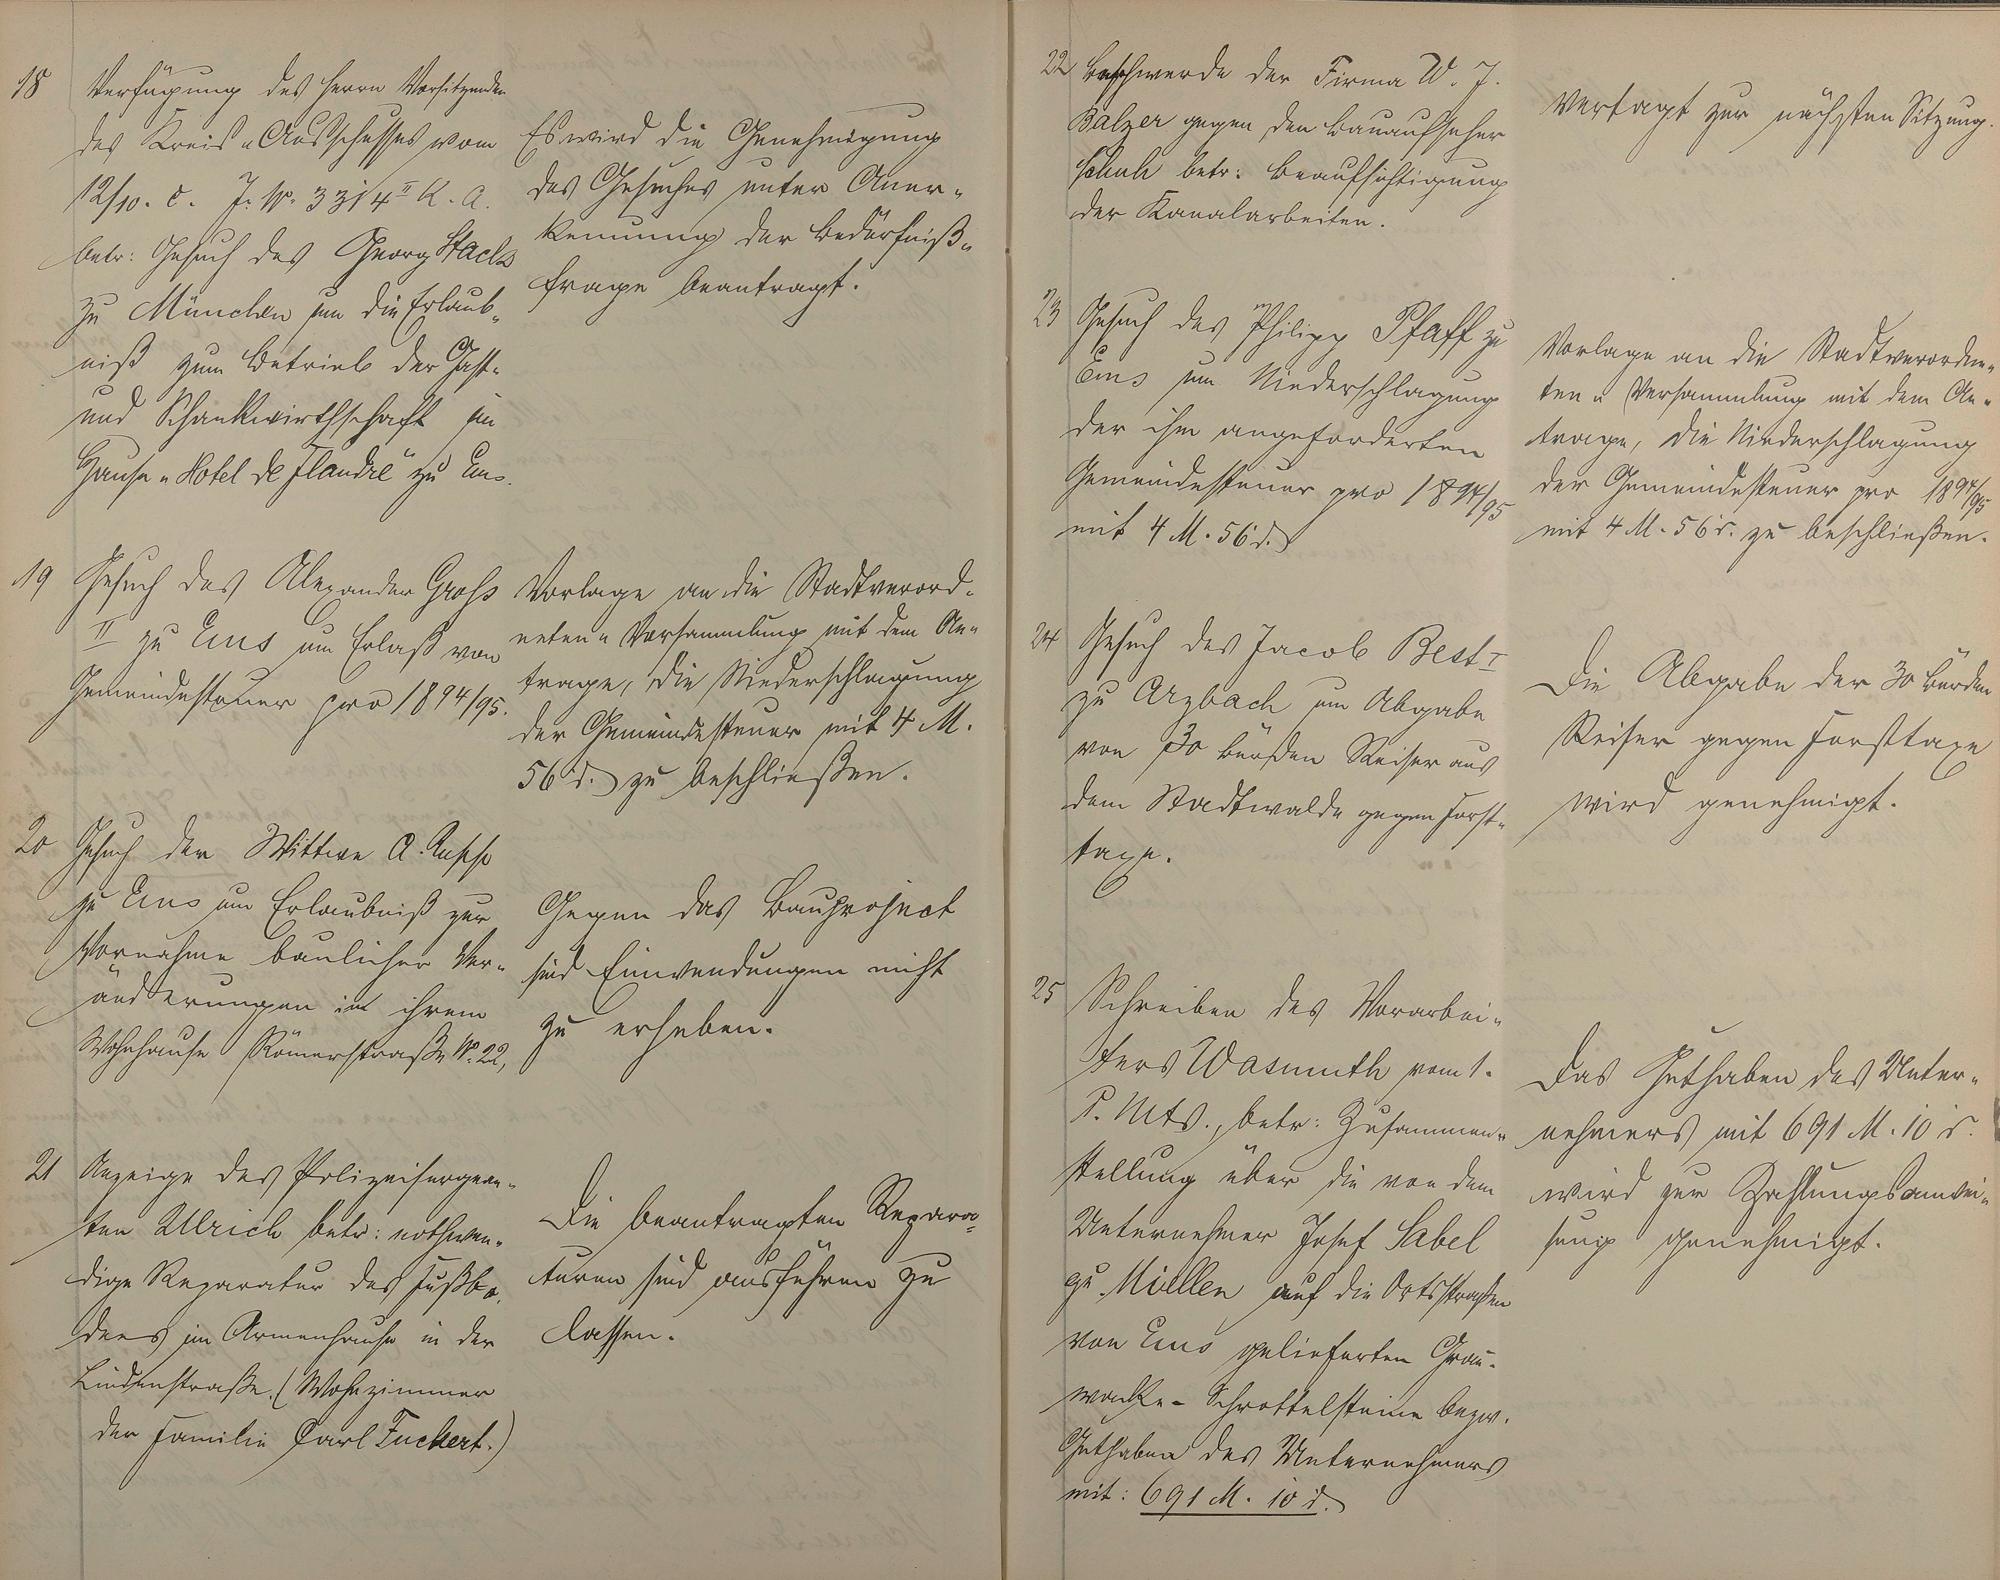 18
Verfügung des Herrn Vorsitzenden
des Kreis-Ausschusses vom
12/10. c. J. Nr. 3314 II K. A.
betr: Gesuch des Georg Stachs
zu München um die Erlaub-
niß zum Betrieb der Gast-
und Schankwirthschaft im
Hause „Hotel de Flandre" zu Ems.
Es wird die Genehmigung
des Gesuches unter Aner-
kennung der Bedürfniß-
frage beantragt.
19
Gesuch des Alexander Groß
II zu Ems um Erlaß von
Gemeindesteuer pro 1894/95.
Vorlage an die Stadtverord-
neten-Versammlung mit dem An-
trage, die Niederschlagung
der Gemeindesteuer mit 4 M.
56 d. zu beschließen.
20
Gesuch der Wittwe A.
zu Ems um Erlaubniß zur
Vornahme baulicher Ver-
änderungen in ihrem
Wohnhause Römerstraße Nr. 22,
Gegen das Bauproject
sind Einwendungen nicht
zu erheben.
21
Anzeige des Polizeisergean-
ten Ulrich betr: nothwen-
dige Reparatur des Fußbo-
dens im Armenhause in der
Lindenstraße. (Wohnzimmer
der Familie Carl Fuckert.)
Die beantragten Repara-
turen sind ausführen zu
lassen.
22
Beschwerde der Firma W. J.
Balzer gegen den Bauaufseher
Schuh betr: Beaufsichtigung
der Kanalarbeiten.
Vertagt zur nächsten Sitzung.
23
Gesuch des Philipp Pfaff zu
Ems um Niederschlagung
der ihm angeforderten
Gemeindesteuer pro 1894/95
mit 4 M. 56 d.
Vorlage an die Stadtverordne-
ten-Versammlung mit dem An-
trage, die Niederschlagung
der Gemeindesteuer pro 1894/95
mit 4 M. 56 d. zu beschließen.
24
Gesuch des Jacob Best I
zu Arzbach um Abgabe
von 30 Bürden Reiser aus
dem Stadtwalde gegen Forst-
taxe.
Die Abgabe der 30 Bürden
Reiser gegen Forsttaxe
wird genehmigt.
25
Schreiben des Vorarbei-
ters Wasmuth vom 1.
d. Mts., betr: Zusammen-
stellung über die von dem
Unternehmer Josef Sabel
zu Miellen auf die Ortsstraßen
von Ems gelieferten Grau-
wacke-Schrottelsteine bezw.
Guthaben des Unternehmers
mit: 691 M. 10 d.
Das Guthaben des Unter-
nehmers mit 691 M. 10 d.
wird zur Zahlungsanwei-
sung genehmigt.